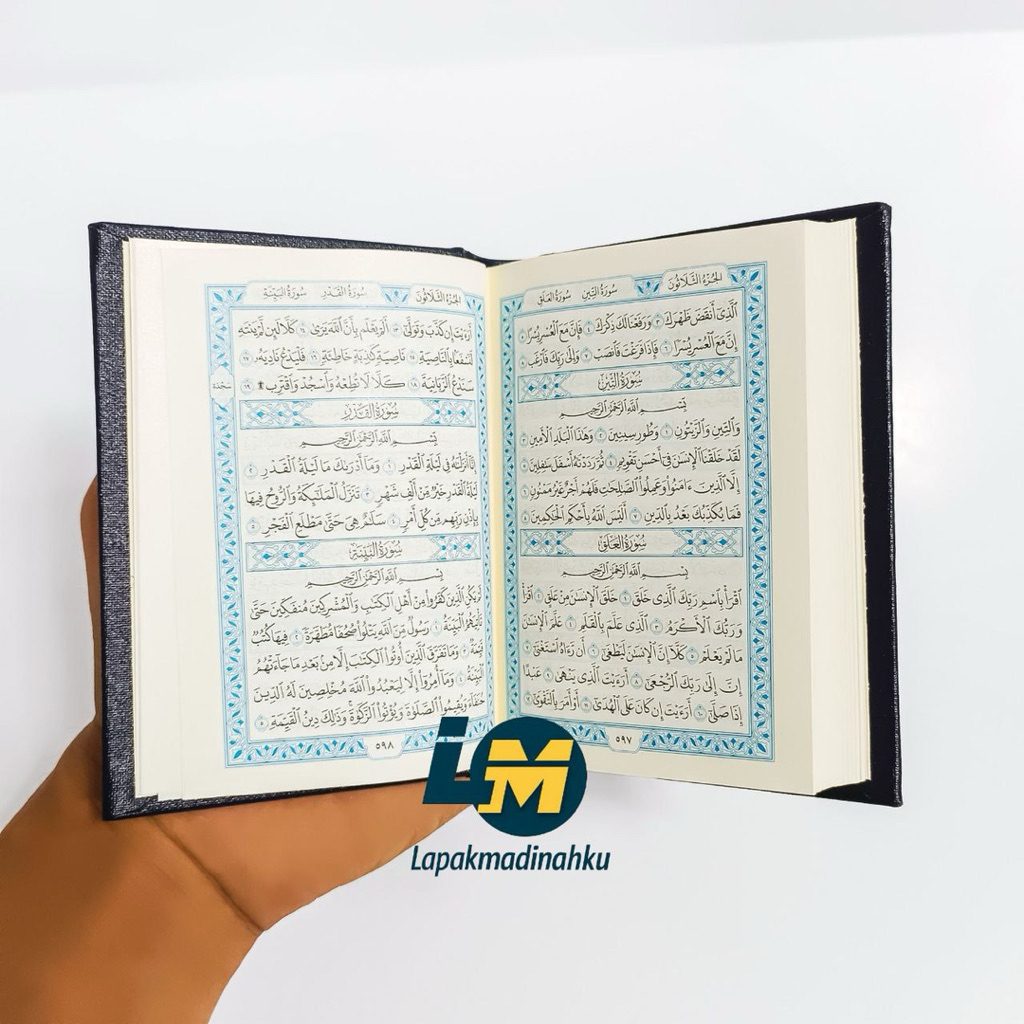 الجُزْءُ الثَّلَاثُونَ سُورَةُ التِّينِ سُورَةُ العَلَقِ
ٱلَّذِىٓ أَنقَضَ ظَهْرَكَ ٣ وَرَفَعْنَا لَكَ ذِكْرَكَ ٤ فَإِنَّ مَعَ ٱلْعُسْرِ يُسْرًا ٥
إِنَّ مَعَ ٱلْعُسْرِ يُسْرًا ٦ فَإِذَا فَرَغْتَ فَٱنصَبْ ٧ وَإِلَىٰ رَبِّكَ فَٱرْغَب ٨
سُورَةُ التِّينِ
بِسْمِ ٱللَّهِ ٱلرَّحْمَٰنِ ٱلرَّحِيمِ
وَٱلتِّينِ وَٱلزَّيْتُونِ ١ وَطُورِ سِينِينَ ٢ وَهَٰذَا ٱلْبَلَدِ ٱلْأَمِينِ ٣
لَقَدْ خَلَقْنَا ٱلْإِنسَٰنَ فِىٓ أَحْسَنِ تَقْوِيمٍ ٤ ثُمَّ رَدَدْنَٰهُ أَسْفَلَ سَٰفِلِينَ ٥
إِلَّا ٱلَّذِينَ ءَامَنُوا۟ وَعَمِلُوا۟ ٱلصَّٰلِحَٰتِ فَلَهُمْ أَجْرٌ غَيْرُ مَمْنُونٍ ٦
فَمَا يُكَذِّبُكَ بَعْدُ بِٱلدِّينِ ٧ أَلَيْسَ ٱللَّهُ بِأَحْكَمِ ٱلْحَٰكِمِينَ ٨
سُورَةُ العَلَقِ
بِسْمِ ٱللَّهِ ٱلرَّحْمَٰنِ ٱلرَّحِيمِ
ٱقْرَأْ بِٱسْمِ رَبِّكَ ٱلَّذِى خَلَقَ ١ خَلَقَ ٱلْإِنسَٰنَ مِنْ عَلَقٍ ٢ ٱقْرَأْ
وَرَبُّكَ ٱلْأَكْرَمُ ٣ ٱلَّذِى عَلَّمَ بِٱلْقَلَمِ ٤ عَلَّمَ ٱلْإِنسَٰنَ
مَا لَمْ يَعْلَمْ ٥ كَلَّآ إِنَّ ٱلْإِنسَٰنَ لَيَطْغَىٰٓ ٦ أَن رَّءَاهُ ٱسْتَغْنَىٰٓ ٧
إِنَّ إِلَىٰ رَبِّكَ ٱلرُّجْعَىٰٓ ٨ أَرَءَيْتَ ٱلَّذِى يَنْهَىٰ ٩ عَبْدًا
إِذَا صَلَّىٰٓ ١٠ أَرَءَيْتَ إِن كَانَ عَلَى ٱلْهُدَىٰٓ ١١ أَوْ أَمَرَ بِٱلتَّقْوَىٰٓ ١٢
٥٩٧
الجُزْءُ الثَّلَاثُونَ سُورَةُ القَدْرِ سُورَةُ البَيِّنَةِ
أَرَءَيْتَ إِن كَذَّبَ وَتَوَلَّىٰٓ ١٣ أَلَمْ يَعْلَم بِأَنَّ ٱللَّهَ يَرَىٰ ١٤ كَلَّا لَئِن لَّمْ يَنتَهِ
لَنَسْفَعًۢا بِٱلنَّاصِيَةِ ١٥ نَاصِيَةٍ كَٰذِبَةٍ خَاطِئَةٍ ١٦ فَلْيَدْعُ نَادِيَهُۥ ١٧
سَنَدْعُ ٱلزَّبَانِيَةَ ١٨ كَلَّا لَا تُطِعْهُ وَٱسْجُدْ وَٱقْتَرِب ۩ ١٩
سَجْدَة
سُورَةُ القَدْرِ
بِسْمِ ٱللَّهِ ٱلرَّحْمَٰنِ ٱلرَّحِيمِ
إِنَّآ أَنزَلْنَٰهُ فِى لَيْلَةِ ٱلْقَدْرِ ١ وَمَآ أَدْرَىٰكَ مَا لَيْلَةُ ٱلْقَدْرِ ٢
لَيْلَةُ ٱلْقَدْرِ خَيْرٌ مِّنْ أَلْفِ شَهْرٍ ٣ تَنَزَّلُ ٱلْمَلَٰٓئِكَةُ وَٱلرُّوحُ فِيهَا
بِإِذْنِ رَبِّهِم مِّن كُلِّ أَمْرٍ ٤ سَلَٰمٌ هِىَ حَتَّىٰ مَطْلَعِ ٱلْفَجْرِ ٥
سُورَةُ البَيِّنَةِ
بِسْمِ ٱللَّهِ ٱلرَّحْمَٰنِ ٱلرَّحِيمِ
لَمْ يَكُنِ ٱلَّذِينَ كَفَرُوا۟ مِنْ أَهْلِ ٱلْكِتَٰبِ وَٱلْمُشْرِكِينَ مُنفَكِّينَ حَتَّىٰ
تَأْتِيَهُمُ ٱلْبَيِّنَةُ ١ رَسُولٌ مِّنَ ٱللَّهِ يَتْلُوا۟ صُحُفًا مُّطَهَّرَةً ٢ فِيهَا كُتُبٌ
قَيِّمَةٌ ٣ وَمَا تَفَرَّقَ ٱلَّذِينَ أُوتُوا۟ ٱلْكِتَٰبَ إِلَّا مِنۢ بَعْدِ مَا جَآءَتْهُمُ
ٱلْبَيِّنَةُ ٤ وَمَآ أُمِرُوٓا۟ إِلَّا لِيَعْبُدُوا۟ ٱللَّهَ مُخْلِصِينَ لَهُ ٱلدِّينَ
حُنَفَآءَ وَيُقِيمُوا۟ ٱلصَّلَوٰةَ وَيُؤْتُوا۟ ٱلزَّكَوٰةَ وَذَٰلِكَ دِينُ ٱلْقَيِّمَةِ ٥
٥٩٨
LM
Lapakmadinahku